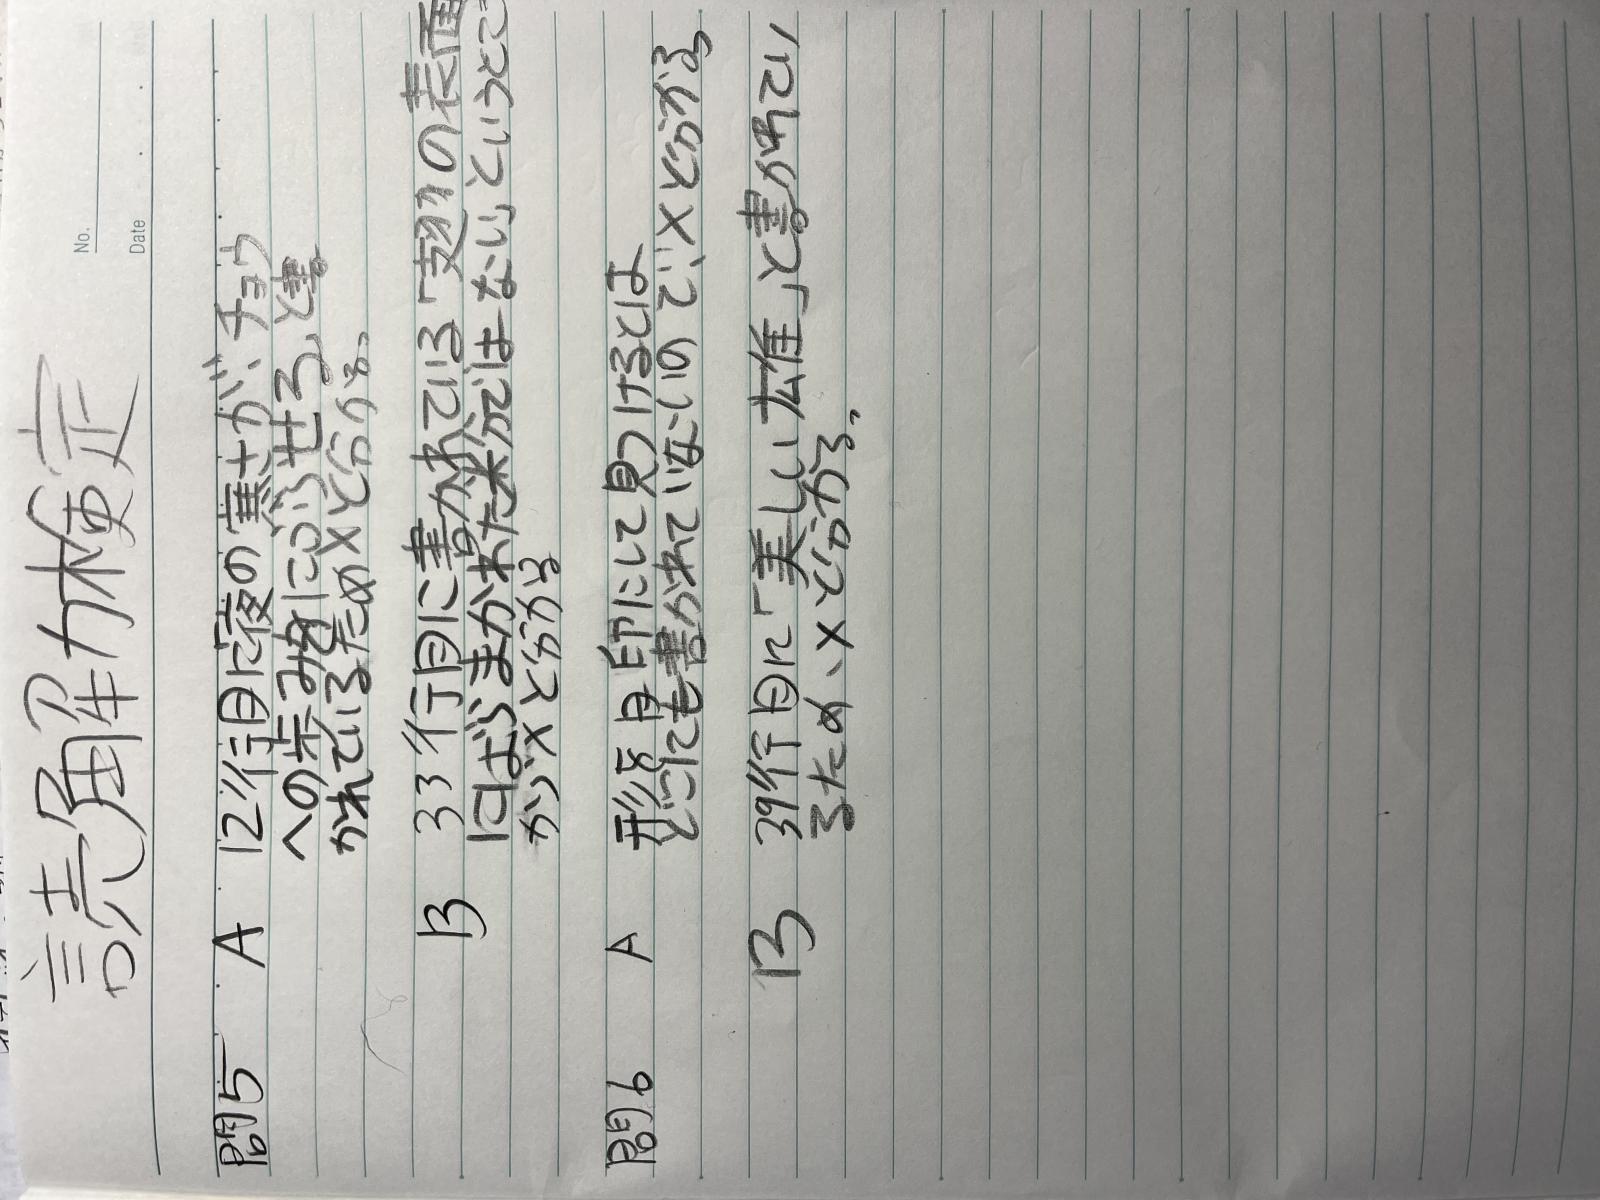 No.
Date
読解力検定
問5 A 12行目に「夜の寒さが、チョウ
への歩みをにぶらせる」と書
かれているため×と分かる。
B 33行目に書かれている「翅の表面
にばらまかれた米分ではない」というところ
から×と分かる
問6 A 形を目印にして見つけるとは
どこにも書かれていないので、×と分かる
B 39行目に「美しい広隹」と書かれてい
るため、×と分かる。